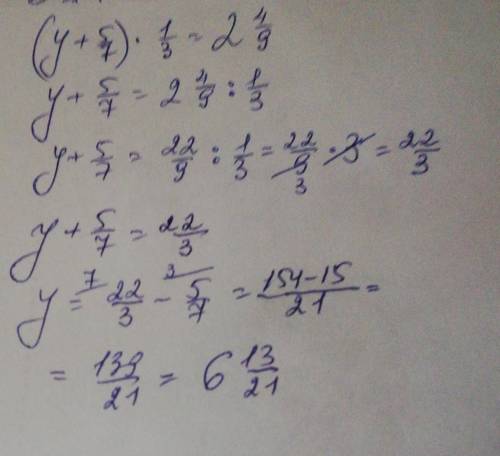 (y + 5/7) · 1/3 = 2 4/9
y + 5/7 = 2 4/9 : 1/3
y + 5/7 = 22/9 : 1/3 = 22/9 · 3 = 22/3
3
y + 5/7 = 22/3
7 3
y = 22/3 - 5/7 = 154-15/21 =
= 139/21 = 6 13/21